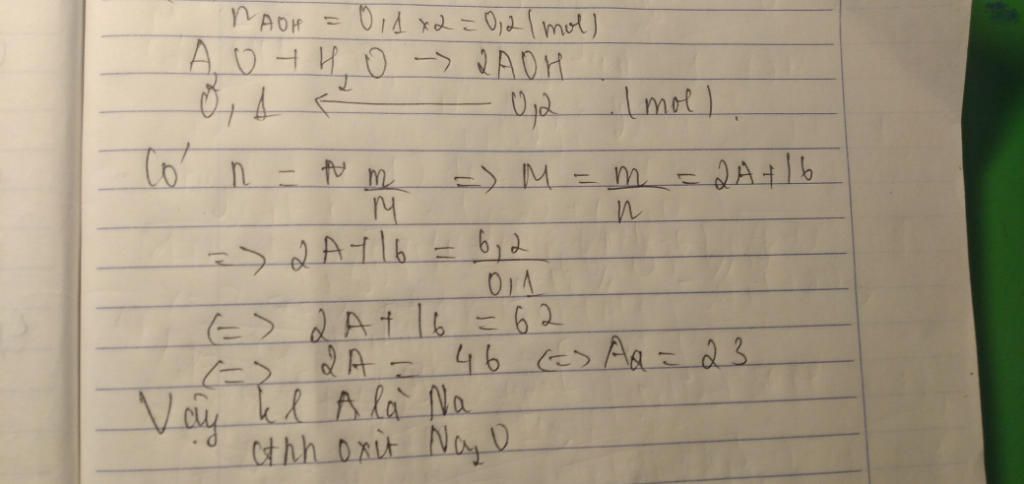 n AOH = 0,1 × 2 = 0,2 (mol)
A₂O + H₂O → 2AOH
0,1 ← 0,2 (mol).
Có n = m/M => M = m/n = 2A + 16
=> 2A + 16 = 6,2/0,1
<=> 2A + 16 = 62
<=> 2A = 46 <=> A = 23
Vậy kl A là Na
cthh oxit Na₂O